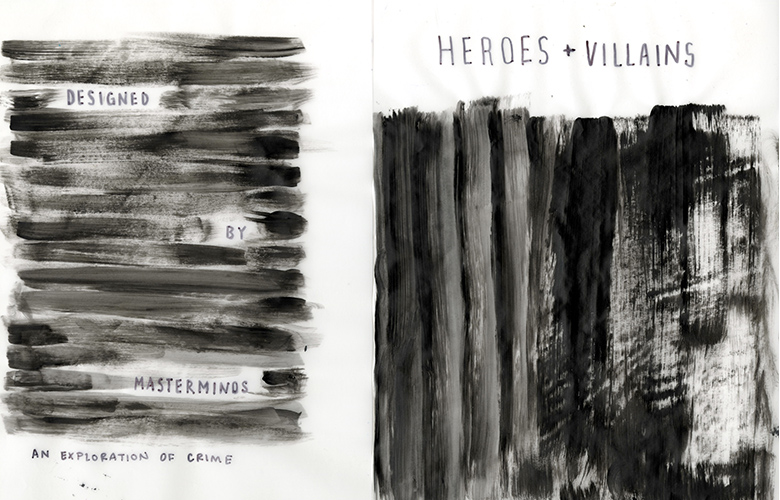 DESIGNED
BY
MASTERMINDS
AN EXPLORATION OF CRIME
HEROES + VILLAINS